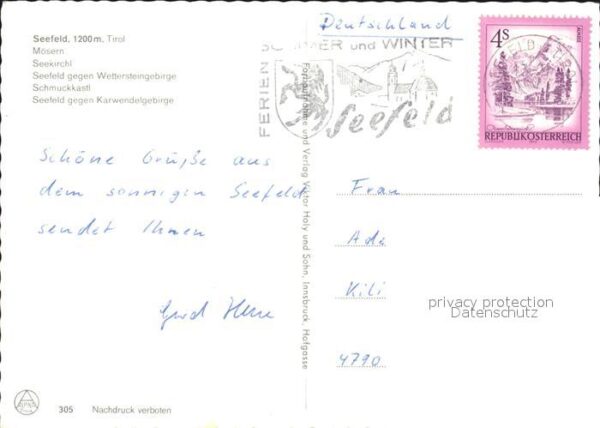 Seefeld, 1200m, Tirol
Mösern
Seekirchl
Seefeld gegen Wettersteingebirge
Schmuckkastl
Seefeld gegen Karwendelgebirge
Deutschland
FERIEN SOMMER und WINTER
Seefeld
4S
REPUBLIK ÖSTERREICH
Schöne Grüße aus
dem sonnigen Seefeld
sendet Ihnen
Gerd
Frau
Ada
Kili
4790
privacy protection
Datenschutz
und Verlag Viktor Holy und Sohn, Innsbruck, Hofgasse
305 Nachdruck verboten